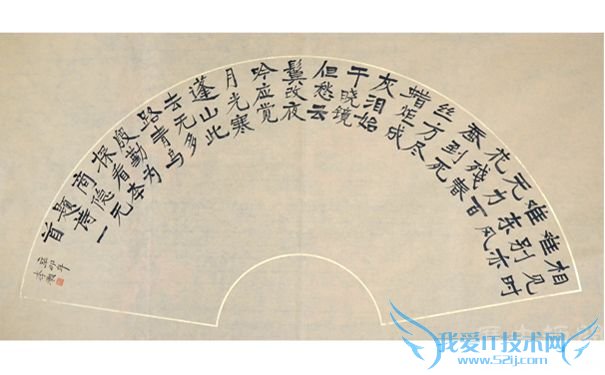 相见时
难别亦
难东风
无力百
花残春
蚕到死
丝方尽
蜡炬成
灰泪始
干晓镜
但愁云
鬓改夜
吟应觉
月光寒
蓬山此
去无多
路青鸟
殷勤为
探看李
商隐无
题诗一
首
辛卯年
李
我爱IT技术网
www.52ij.com